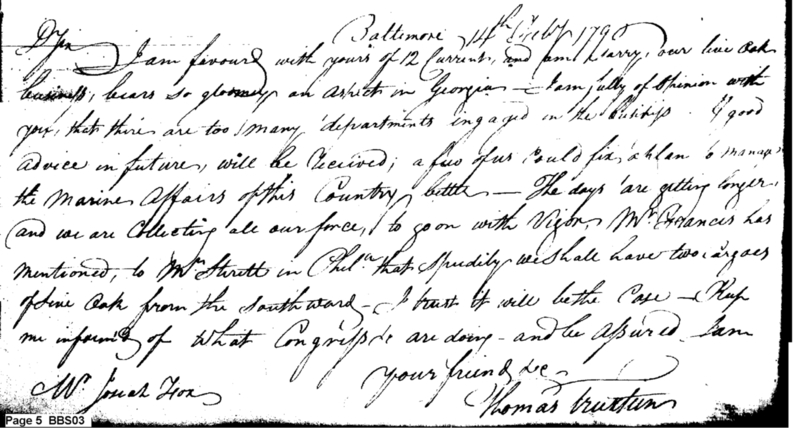 Baltimore 14th Feby 1796
D Sir I am favour'd with yours of 12 Current, and am sorry, our live Oak
business, bears so gloomy an aspect in Georgia — I am fully of Opinion with
you, that there are too many departments engaged in the Business. If good
advice in future, will be received, a few of us could fix a plan to manage
the Marine Affairs of this Country better — The days are getting longer,
and we are Collecting all our force, to go on with Vigor, Mr Francis has
mentioned, to Mr Strett in Phila. that speedily we shall have two cargoes
of Live Oak from the southward — I trust it will be the Case — Keep
me informed of what Congress &c are doing — and be assured I am
your friend &c —
Mr Josiah Fox
Thomas Truxtun
Page 5 BBS03